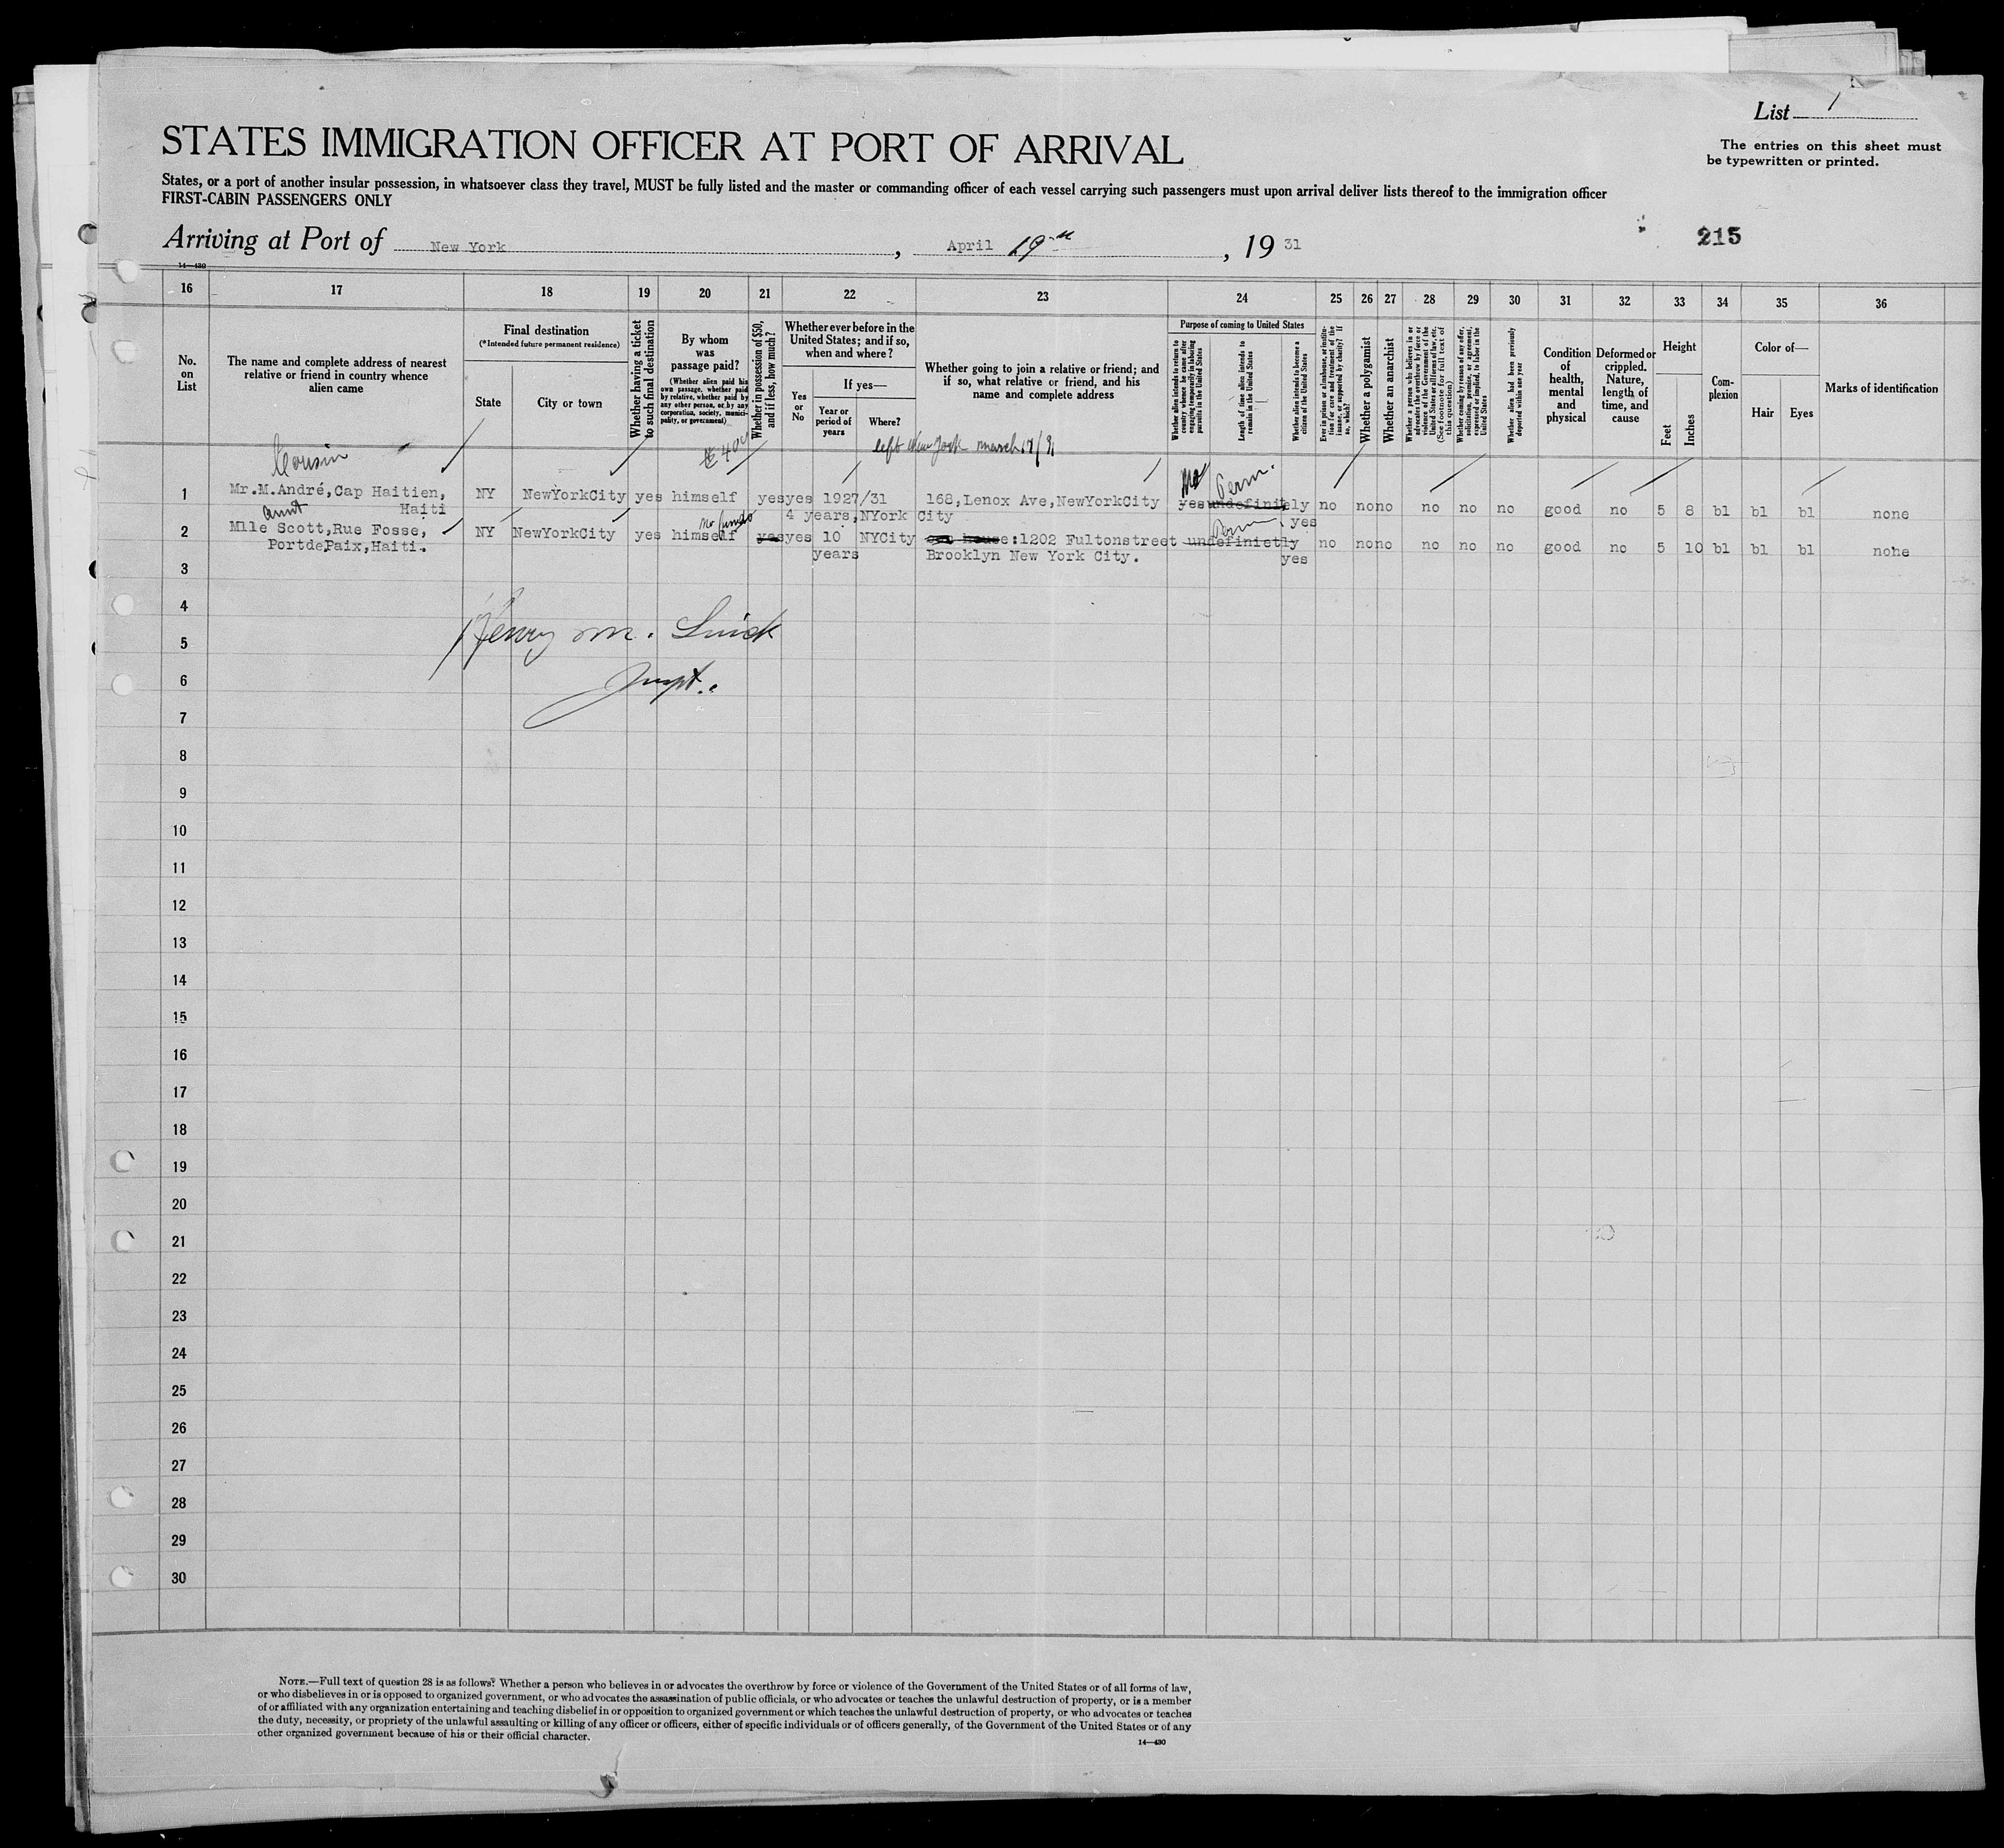 List 1
The entries on this sheet must
be typewritten or printed.
STATES IMMIGRATION OFFICER AT PORT OF ARRIVAL
States, or a port of another insular possession, in whatsoever class they travel, MUST be fully listed and the master or commanding officer of each vessel carrying such passengers must upon arrival deliver lists thereof to the immigration officer
FIRST-CABIN PASSENGERS ONLY
Arriving at Port of New York, April 19th, 1931
215
14—430
16 17 18 19 20 21 22 23 24 25 26 27 28 29 30 31 32 33 34 35 36
No. on List
The name and complete address of nearest relative or friend in country whence alien came
Final destination
(*Intended future permanent residence)
State
City or town
Whether having a ticket to such final destination
By whom was passage paid?
(Whether alien paid his own passage, whether paid by relative, whether paid by any other person, or by any corporation, society, municipality, or government)
Whether in possession of $50, and if less, how much?
Whether ever before in the United States; and if so, when and where?
Yes or No
If yes—
Year or period of years
Where?
Whether going to join a relative or friend; and if so, what relative or friend, and his name and complete address
Purpose of coming to United States
Whether alien intends to return to country whence he came after engaging temporarily in laboring pursuits in the United States
Length of time alien intends to remain in the United States
Whether alien intends to become a citizen of the United States
Ever in prison or almshouse, or institution for care and treatment of the insane, or supported by charity? If so, which?
Whether a polygamist
Whether an anarchist
Whether a person who believes in or advocates the overthrow by force or violence of the Government of the United States or all forms of law, etc. (See footnote for full text of this question)
Whether coming by reason of any offer, solicitation, promise, or agreement, expressed or implied, to labor in the United States
Whether alien had been previously deported within one year
Condition of health, mental and physical
Deformed or crippled. Nature, length of time, and cause
Height
Feet
Inches
Complexion
Color of—
Hair
Eyes
Marks of identification
Cousin
left New York march 17/31
No Perm.
1 Mr.M.André,Cap Haitien, NY NewYorkCity yes himself yes yes 1927/31 168,Lenox Ave,NewYorkCity yes undefinitely no no no no no no good no 5 8 bl bl bl none
Haiti 4 years,NYork City yes
aunt no funds Perm
2 Mlle Scott,Rue Fosse, NY NewYorkCity yes himself yes yes 10 NYCity house:1202 Fultonstreet undefinietly no no no no no no good no 5 10 bl bl bl none
PortdePaix,Haiti. years Brooklyn New York City. yes
3
4
Henry M.
5
6
Inspt.
7
8
9
10
11
12
13
14
15
16
17
18
19
20
21
22
23
24
25
26
27
28
29
30
NOTE.—Full text of question 28 is as follows: Whether a person who believes in or advocates the overthrow by force or violence of the Government of the United States or of all forms of law,
or who disbelieves in or is opposed to organized government, or who advocates the assassination of public officials, or who advocates or teaches the unlawful destruction of property, or is a member
of or affiliated with any organization entertaining and teaching disbelief in or opposition to organized government or which teaches the unlawful destruction of property, or who advocates or teaches
the duty, necessity, or propriety of the unlawful assaulting or killing of any officer or officers, either of specific individuals or of officers generally, of the Government of the United States or of any
other organized government because of his or their official character.
14—430